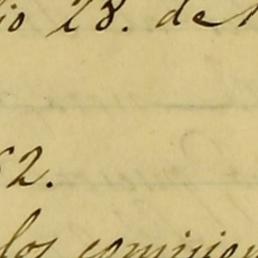 io 28. de
62.
los comision